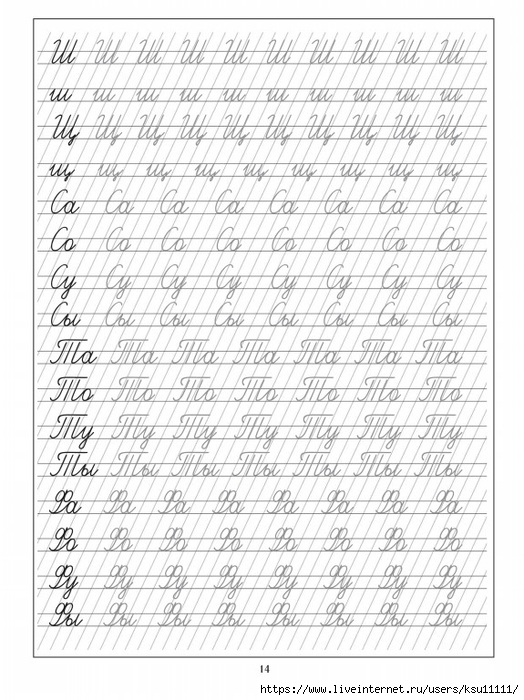 Ш Ш Ш Ш Ш Ш Ш Ш Ш Ш
ш ш ш ш ш ш ш ш ш ш
Щ Щ Щ Щ Щ Щ Щ Щ Щ Щ
щ щ щ щ щ щ щ щ щ
Са Са Са Са Са Са Са Са
Со Со Со Со Со Со Со Со
Су Су Су Су Су Су Су Су
Сы Сы Сы Сы Сы Сы Сы Сы
Та Та Та Та Та Та Та
То То То То То То То
Ту Ту Ту Ту Ту Ту Ту
Ты Ты Ты Ты Ты Ты Ты
Фа Фа Фа Фа Фа Фа Фа Фа
Фо Фо Фо Фо Фо Фо Фо Фо
Фу Фу Фу Фу Фу Фу Фу Фу
Фы Фы Фы Фы Фы Фы Фы Фы
14
https://www.liveinternet.ru/users/ksu11111/